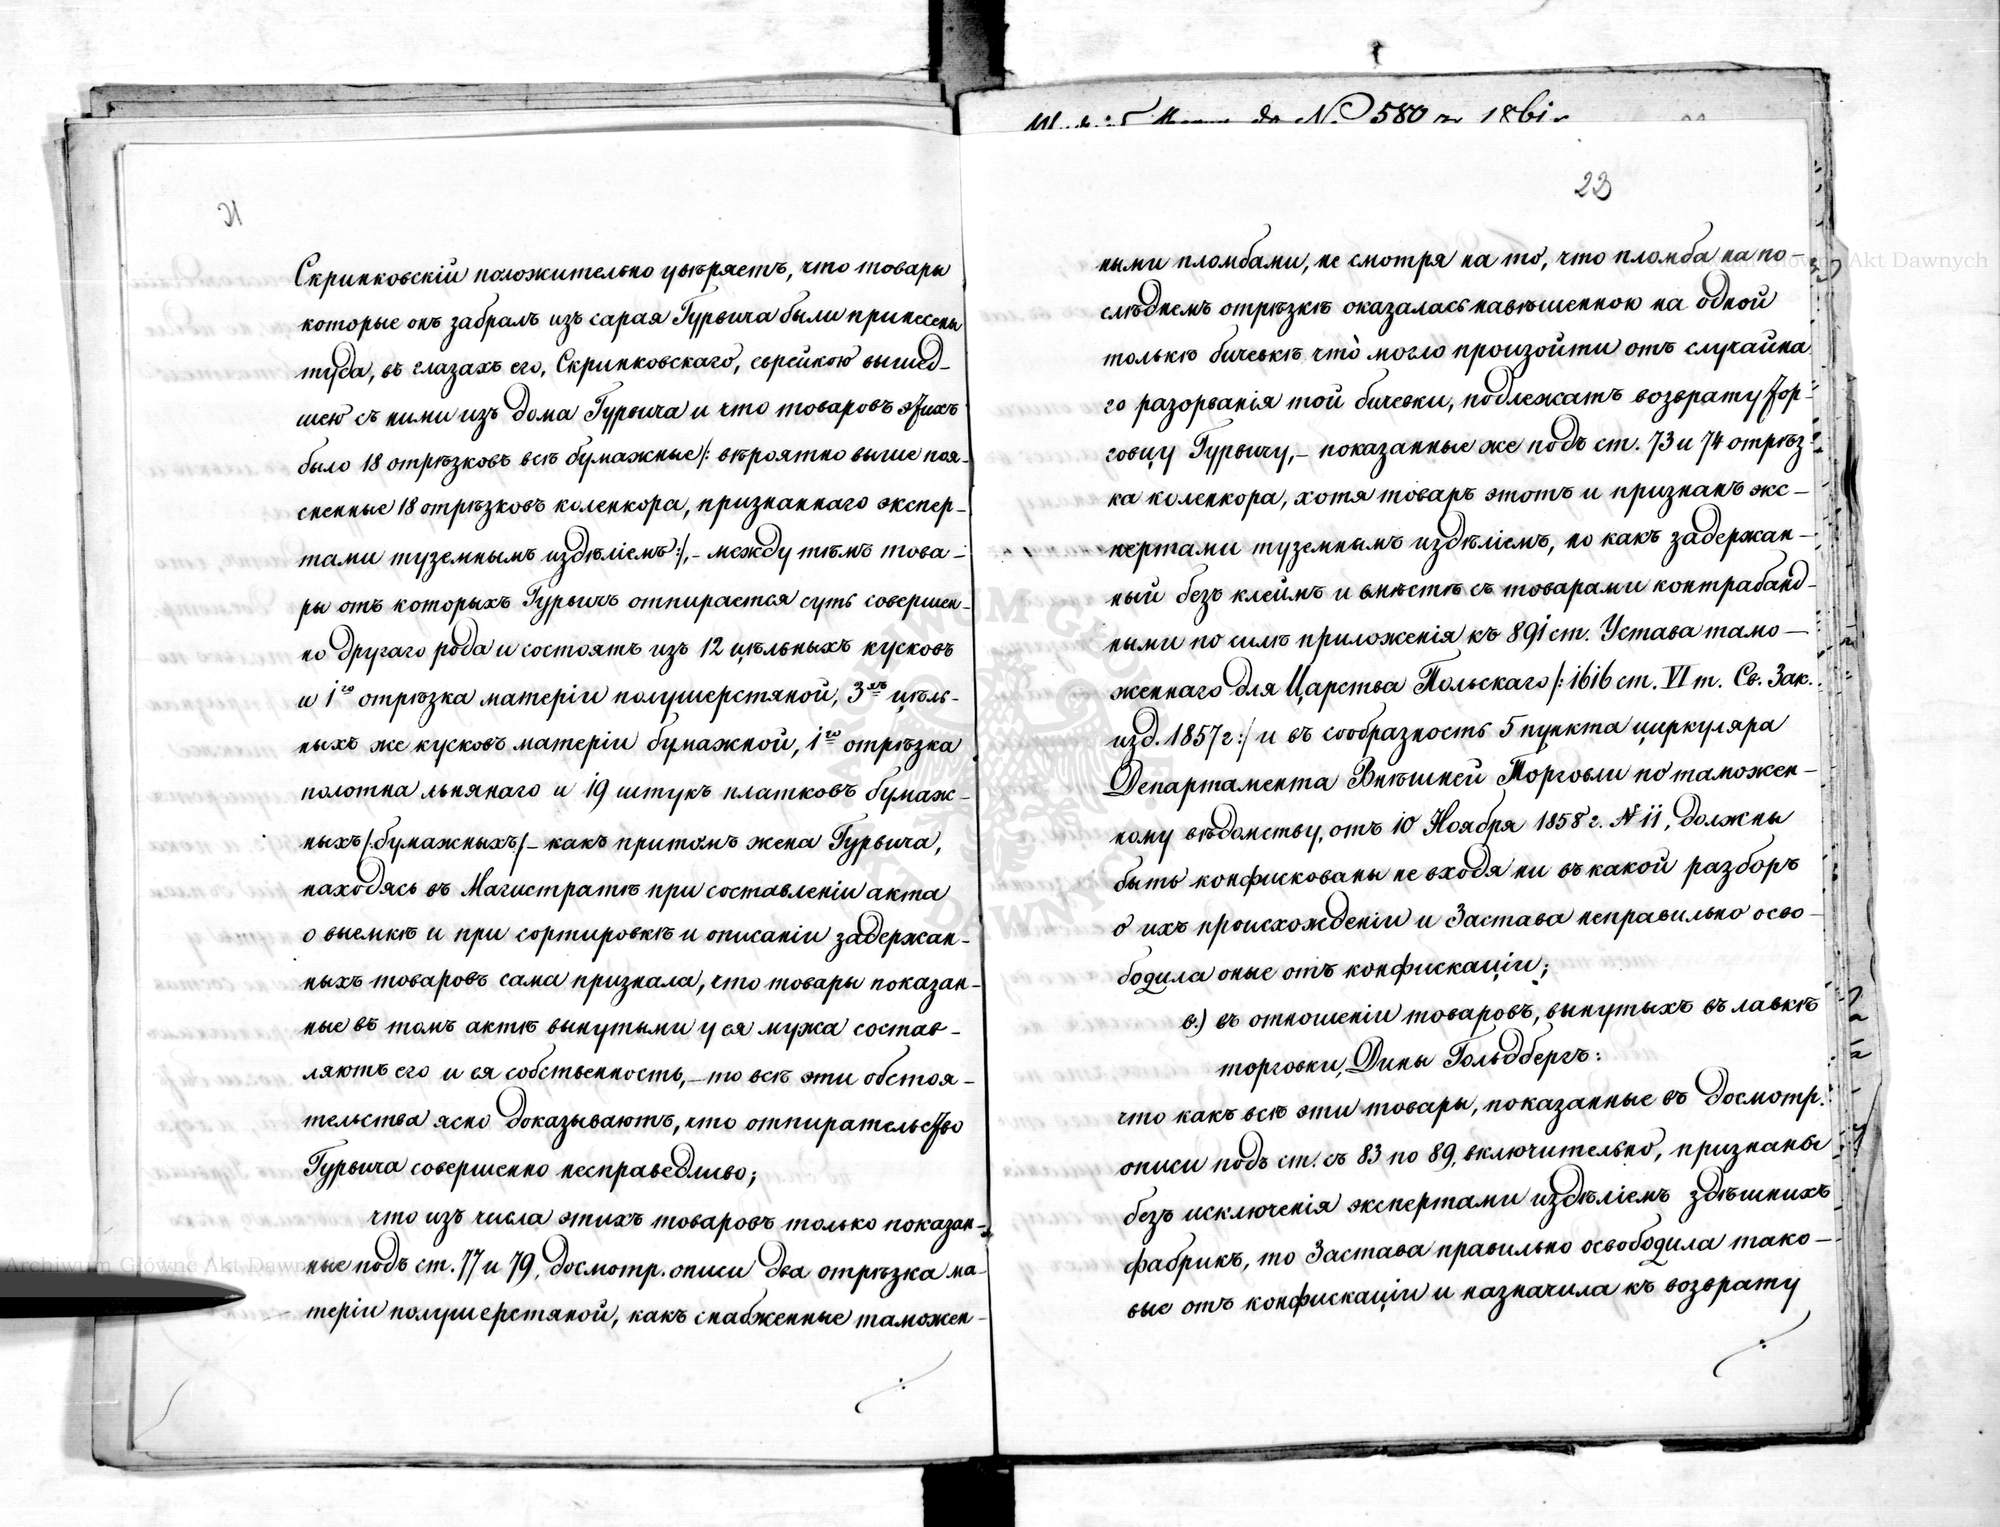 № 580 1861
21
Скринковскій положительно увѣряетъ, что товары
которые онъ забралъ изъ сарая Гурвича были принесены
туда, въ глазахъ его, Скринковскаго, еврейкою вышед-
шею съ ними изъ дома Гурвича и что товаровъ этихъ
было 18 отрѣзковъ всѣ бумажные /: вѣроятно выше поя-
сненные 18 отрѣзковъ коленкора, признаннаго экспер-
тами туземнымъ издѣліемъ :/, - между тѣмъ това-
ры отъ которыхъ Гурвичъ отпирается суть совершен-
но другаго рода и состоятъ изъ 12 цѣльныхъ кусковъ
и 1го отрѣзка матеріи полушерстяной, 3хъ цѣль-
ныхъ же кусковъ матеріи бумажной, 1го отрѣзка
полотна льнянаго и 19 штукъ платковъ бумаж-
ныхъ /:бумажныхъ/ - какъ притомъ жена Гурвича,
находясь въ Магистратѣ при составленіи акта
о выемкѣ и при сортировкѣ и описаніи задержан-
ныхъ товаровъ сама признала, что товары показан-
ные въ томъ актѣ вынутыми у ея мужа состав-
ляютъ его и ея собственность, - то всѣ эти обстоя-
тельства ясно доказываютъ, что отпирательство
Гурвича совершенно несправедливо;
что изъ числа этихъ товаровъ только показан-
ные подъ ст. 77 и 79, досмотр. описи два отрѣзка ма-
теріи полушерстяной, какъ снабженные таможен-
23
ными пломбами, не смотря на то, что пломба на по-
слѣднемъ отрѣзкѣ оказалась навѣшенною на одной
только бичевкѣ что могло произойти отъ случайна
го разорванія той бичевки, подлежатъ возврату тор-
говцу Гурвичу, - показанные же подъ ст. 73 и 74 отрѣз-
ка коленкора, хотя товаръ этотъ и признанъ экс-
пертами туземнымъ издѣліемъ, но какъ задержан-
ный безъ клеймъ и вмѣстѣ съ товарами контрабанд-
ными по силѣ приложенія къ 891 ст. Устава тамо-
женнаго для Царства Польскаго /: 1616 ст. VI т. Св. Зак.
изд. 1857 г :/ и въ сообразность 5 пункта циркуляра
Департамента Внѣшней Торговли по таможен-
ному вѣдомству, отъ 10 Ноября 1858 г. № 11, должны
быть конфискованы не входя ни въ какой разборъ
о ихъ происхожденіи и Застава неправильно осво-
бодила оные отъ конфискаціи;
в.) въ отношеніи товаровъ, вынутыхъ въ лавкѣ
торговки, Дины Гольдбергъ:
что какъ всѣ эти товары, показанные въ досмотр.
описи подъ ст. съ 83 по 89, включительно, признаны
безъ исключенія экспертами издѣліемъ здѣшнихъ
фабрикъ, то Застава правильно освободила тако-
вые отъ конфискаціи и назначила къ возврату
Archiwum Główne Akt Dawnych